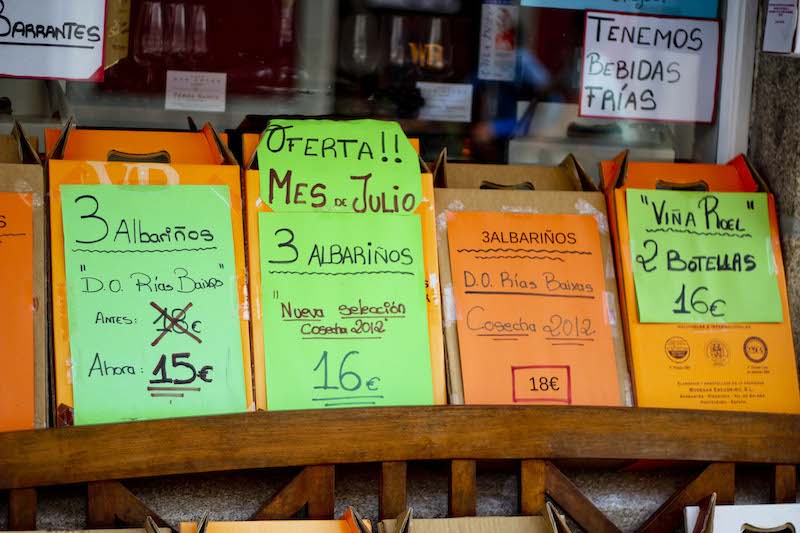 BARRANTES
TENEMOS
BEBIDAS
FRÍAS
3 Albariños
"D.O. Rías Baixas"
ANTES: 18€
Ahora: 15€
OFERTA!!
MES DE JULIO
3 ALBARIÑOS
"Nueva selección
Cosecha 2012"
16€
3ALBARIÑOS
D.O. Rías Baixas
Cosecha 2012
18€
"VIÑA ROEL"
2 BOTELLAS
16€